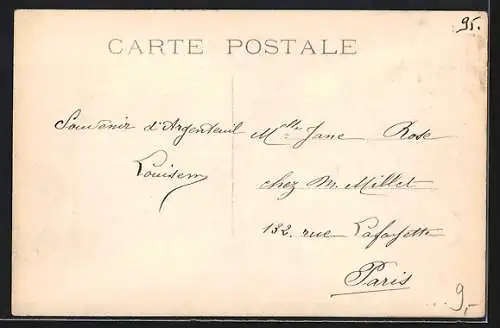 95.
CARTE POSTALE
Souvenir d'Argenteuil
Mlle Jane Rose
chez M. Millet
132. rue Lafayette
Paris
9,-